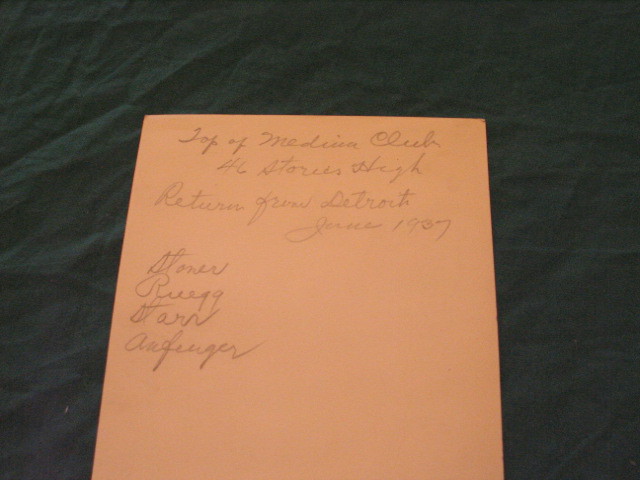 Top of Medina Club
46 Stories High
Return from Detroit
June 1937
Stoner
Ruegg
Starr
Anfenger